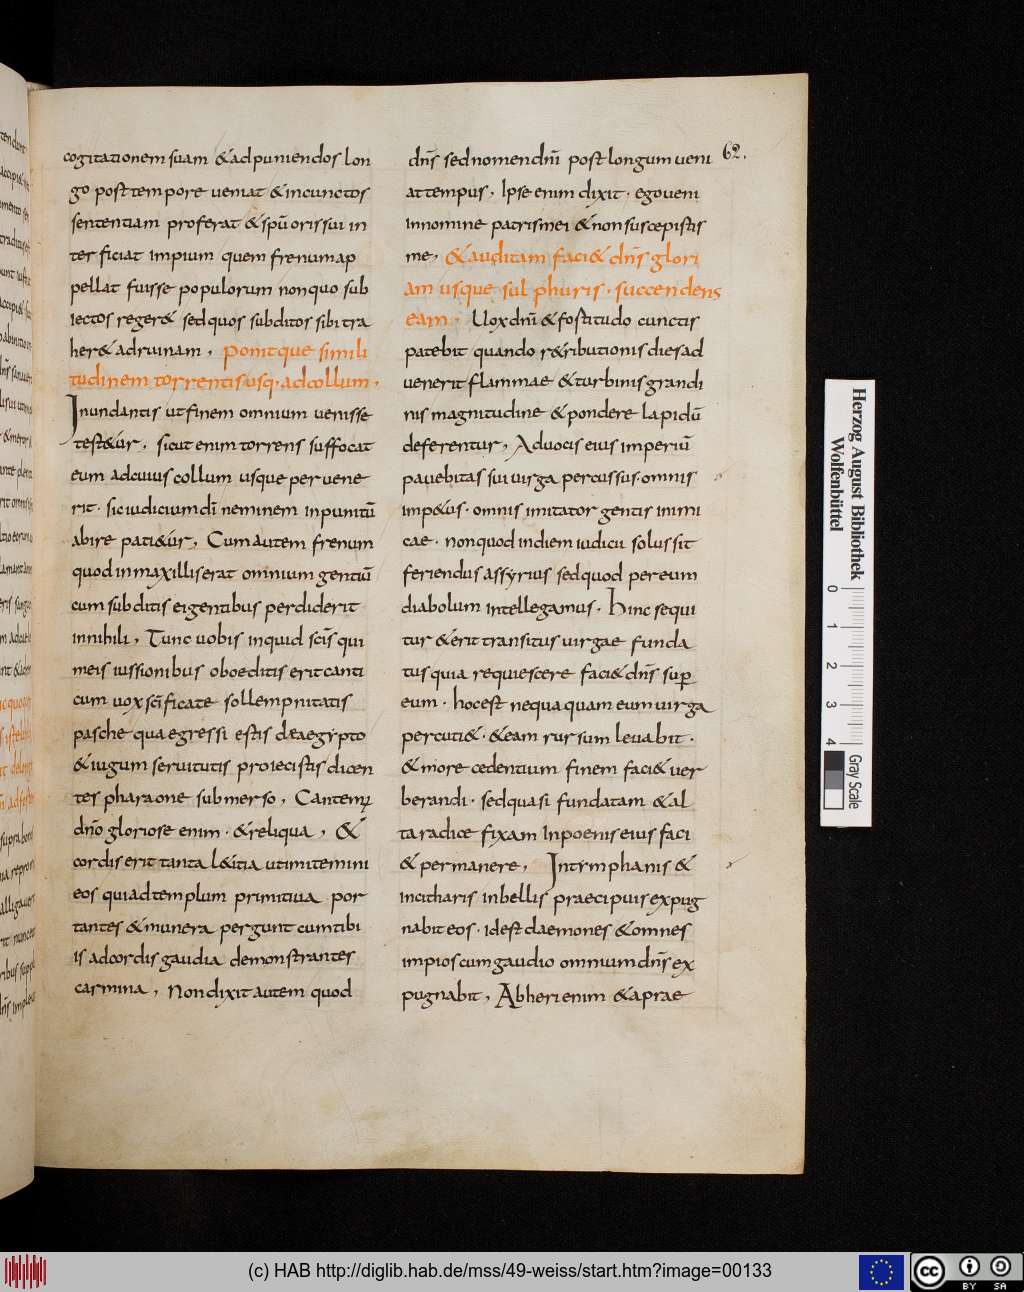 cogitationem suam &adpuniendos lon
go posttempore ueniat &incunctos
sententiam proferat &spū orissui in
terficiat impium quem frenumap
pellat fuisse populorum nonquo sub
iectos reger& sedquos subditos sibi tra
her& adruinam, ponitque simili
tudinem torrentis usq· adcollum,
Inundantis utfinem omnium uenisse
test&ur, sicut enim torrens suffocat
eum adcuius collum usque peruene
rit · sic iudicium dī neminem inpunitū
abire pati&ur, Cum autem frenum
quod inmaxillis erat omnium gentiū
cum subditis ei gentibus perdiderit
innihili, Tunc uobis inquid scīs qui
meis iussionibus oboeditis erit canti
cum uox scīficate sollempnitatis
pasche qua egressi estis deaegypto
&iugum seruitutis proiecistis dicen
tes pharaone submerso, Cantem;
dn̄o gloriose enim · &reliqua, &
cordis erit tanta l&itia utimitemini
eos quiadtemplum primitiua por
tantes &munera pergunt cumtibi
is adcordis gaudia demonstrantes
carmina, Nondixit autem quod
dn̄s sednomendn̄i post longum ueni
at tempus, Ipse enim dixit · ego ueni
innomine patris mei &nonsuscepistis
me, &auditam faci& dn̄s glori
am usque sulphuris · succendens
eam, Uox dn̄i &fostitudo cunctis
patebit quando r&ributionis dies ad
uenerit flammae &turbinis grandi
nis magnitudine &pondere lapidū
deferentur, Aduocis eius imperiū
pauebitas sui uirga percussus · omnis
imp&us · omnis imitator gentis inimi
cae · nonquod indiem iudicii solus sit
feriendus assyrius sedquod per eum
diabolum intellegamus, hinc sequi
tur &erit transitus uirgae funda
tus quia requiescere faci& dn̄s sup̱
eum · hocest nequaquam eum uirga
percuti& · &eam rursum leuabit ·
&more cedentium finem faci& uer
berandi · sedquasi fundatam &al
ta radice fixam Inpoenis eius faci
& permanere, Intrmphanis &
incitharis inbellis praecipuis expug
nabit eos · idest daemones &omnes
impios cum gaudio omnium dn̄s ex
pugnabit, Abheri enim &aprae
62.
Herzog August Bibliothek
Wolfenbüttel
0 1 2 3 4
Gray Scale
(c) HAB http://diglib.hab.de/mss/49-weiss/start.htm?image=00133
cc BY SA